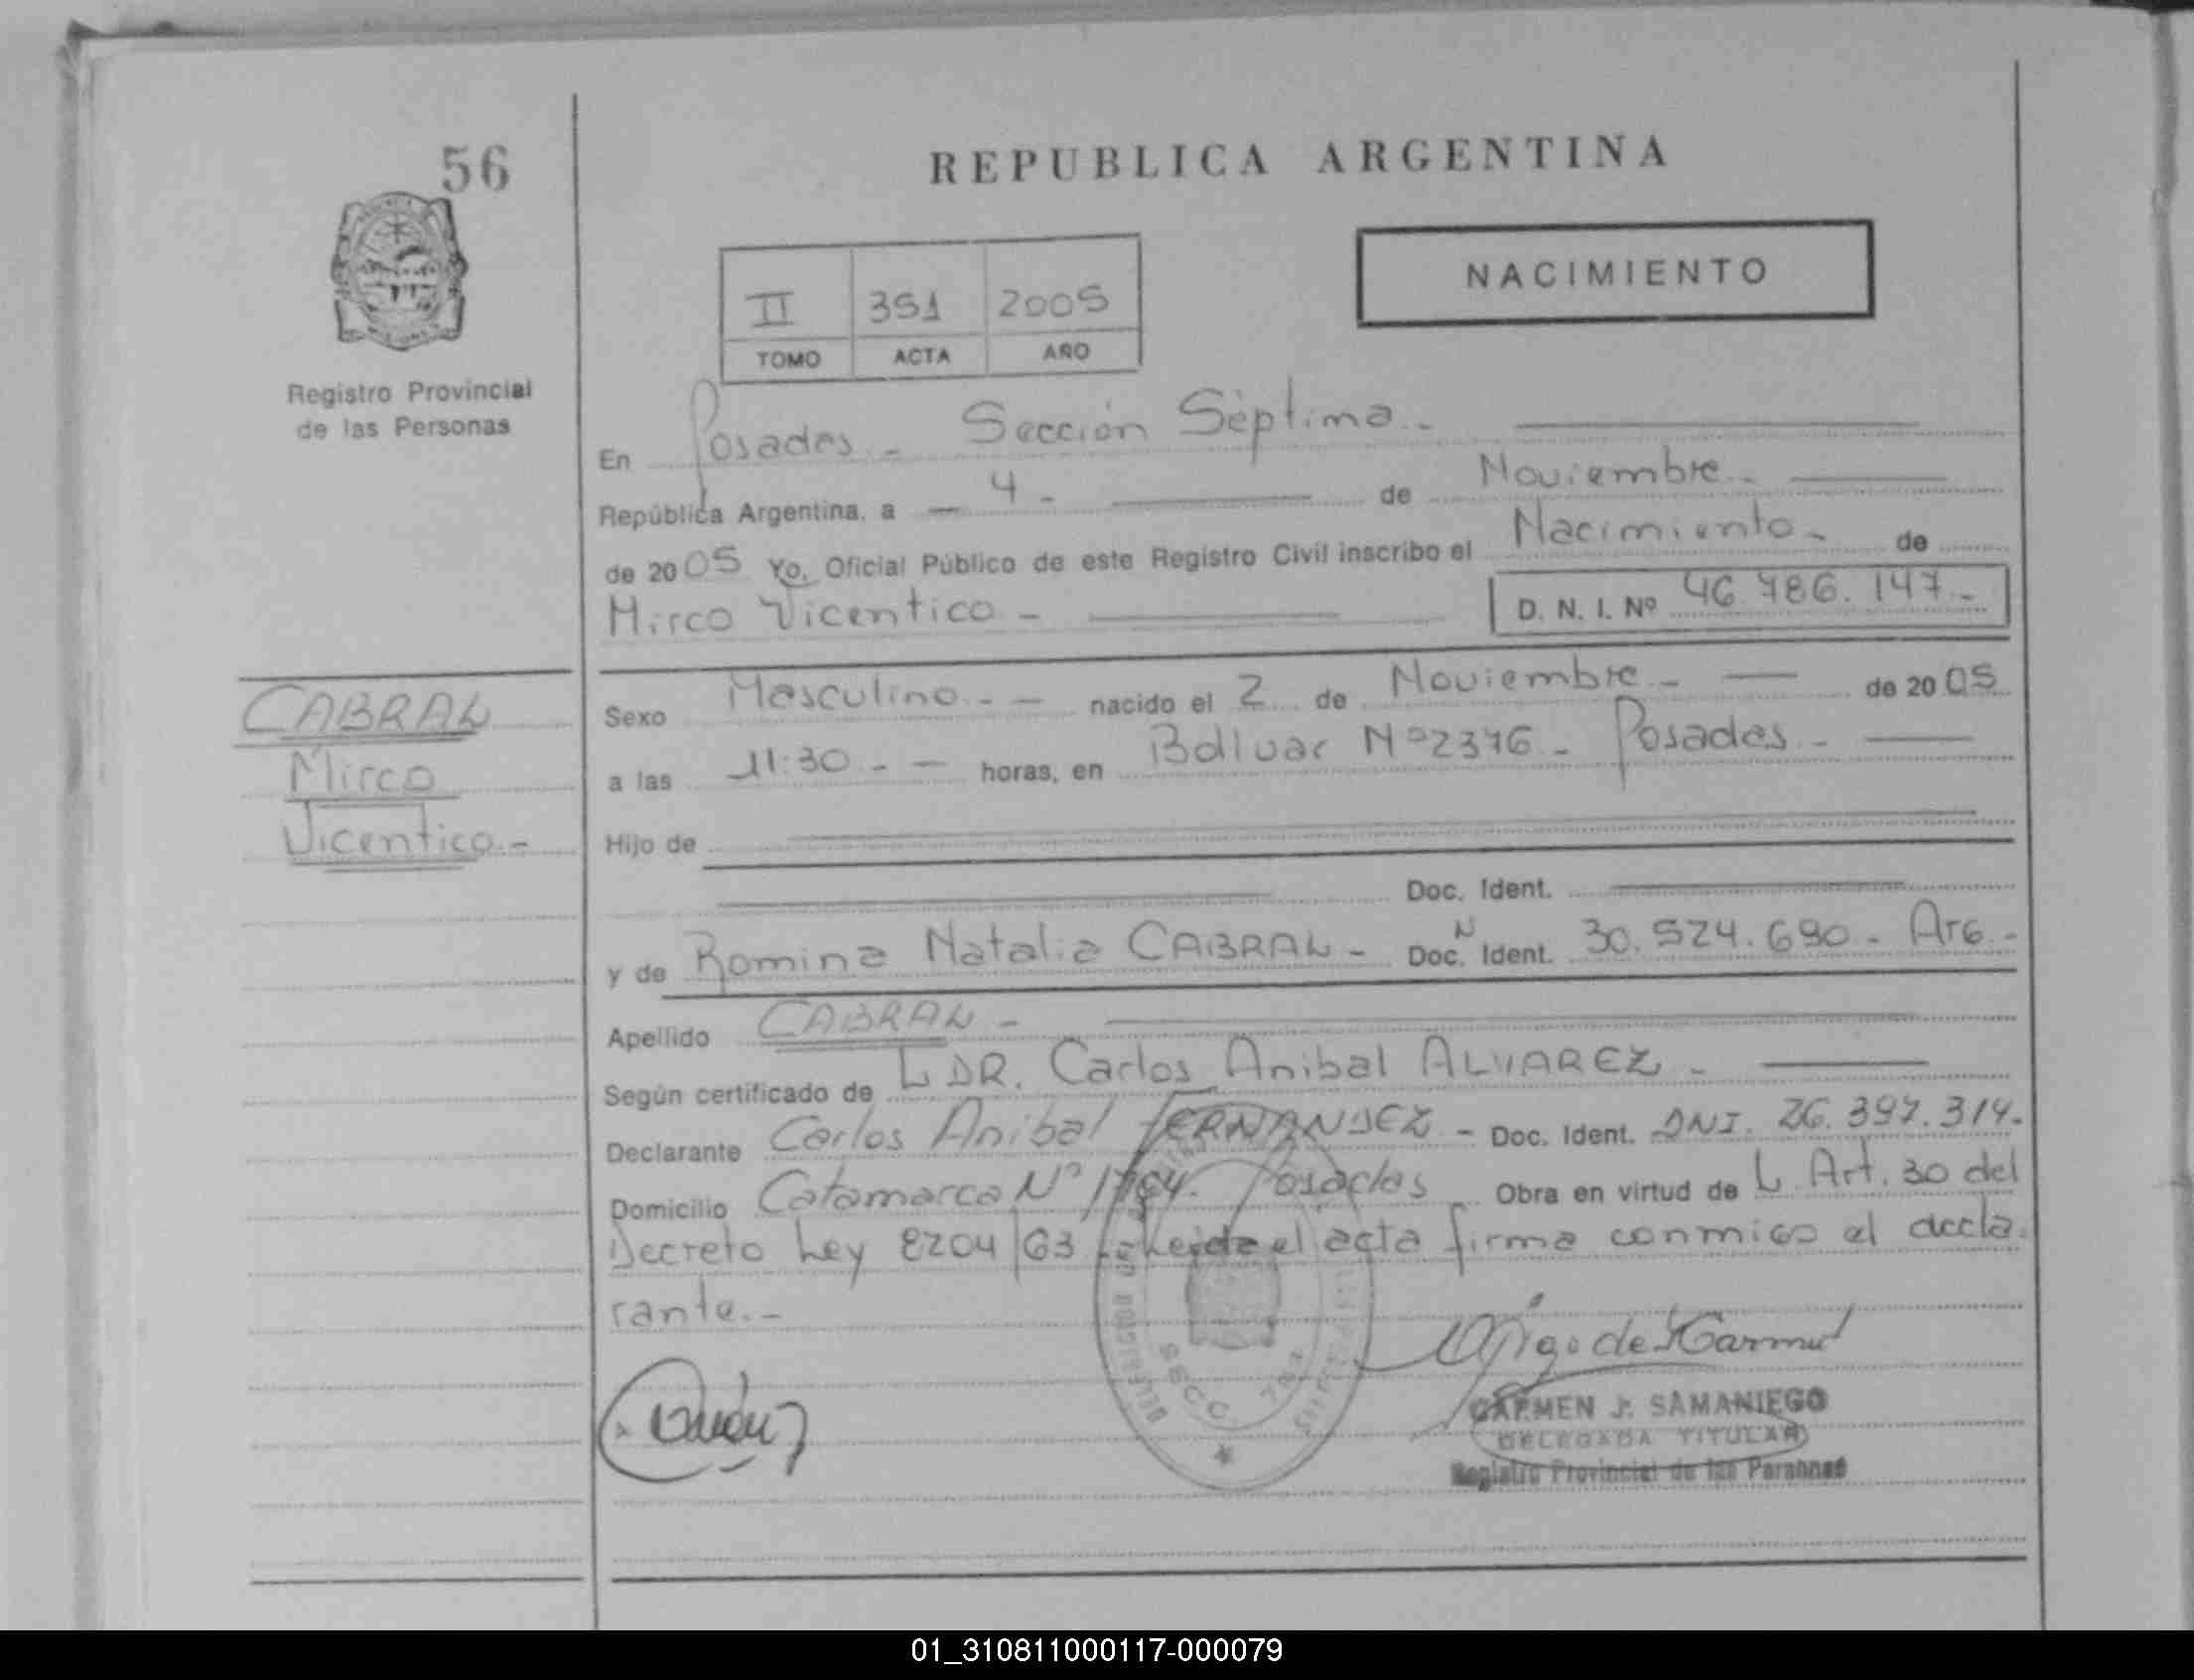 56
REPUBLICA ARGENTINA
NACIMIENTO
II 351 2005
TOMO ACTA AÑO
Registro Provincial
de las Personas
En Posadas - Sección Séptima.-
República Argentina, a - 4 - de Noviembre.-
de 2005 Yo, Oficial Público de este Registro Civil inscribo el Nacimiento - de
Mirco Vicentico - D. N. I. Nº 46.786.147.-
CABRAL
Mirco
Vicentico.-
Sexo Masculino. - - nacido el 2 de Noviembre - de 2005
a las 11:30 - - horas, en Bolivar Nº 2376 - Posadas -
Hijo de
Doc. Ident.
y de Romina Natalia CABRAL - Doc. N Ident. 30.524.690 - Arg -
Apellido CABRAL -
Según certificado de L DR. Carlos Anibal ALVAREZ -
Declarante Carlos Anibal FERNANDEZ - Doc. Ident. DNI. 26.397.314.
Domicilio Catamarca Nº Posadas Obra en virtud de L Art. 30 del
Decreto Ley 8204/63 Leida el acta firma conmigo el decla
rante.-
SECC. 7ma
CARMEN J. SAMANIEGO
DELEGADA TITULAR
Registro Provincial de las Personas
01_310811000117-000079